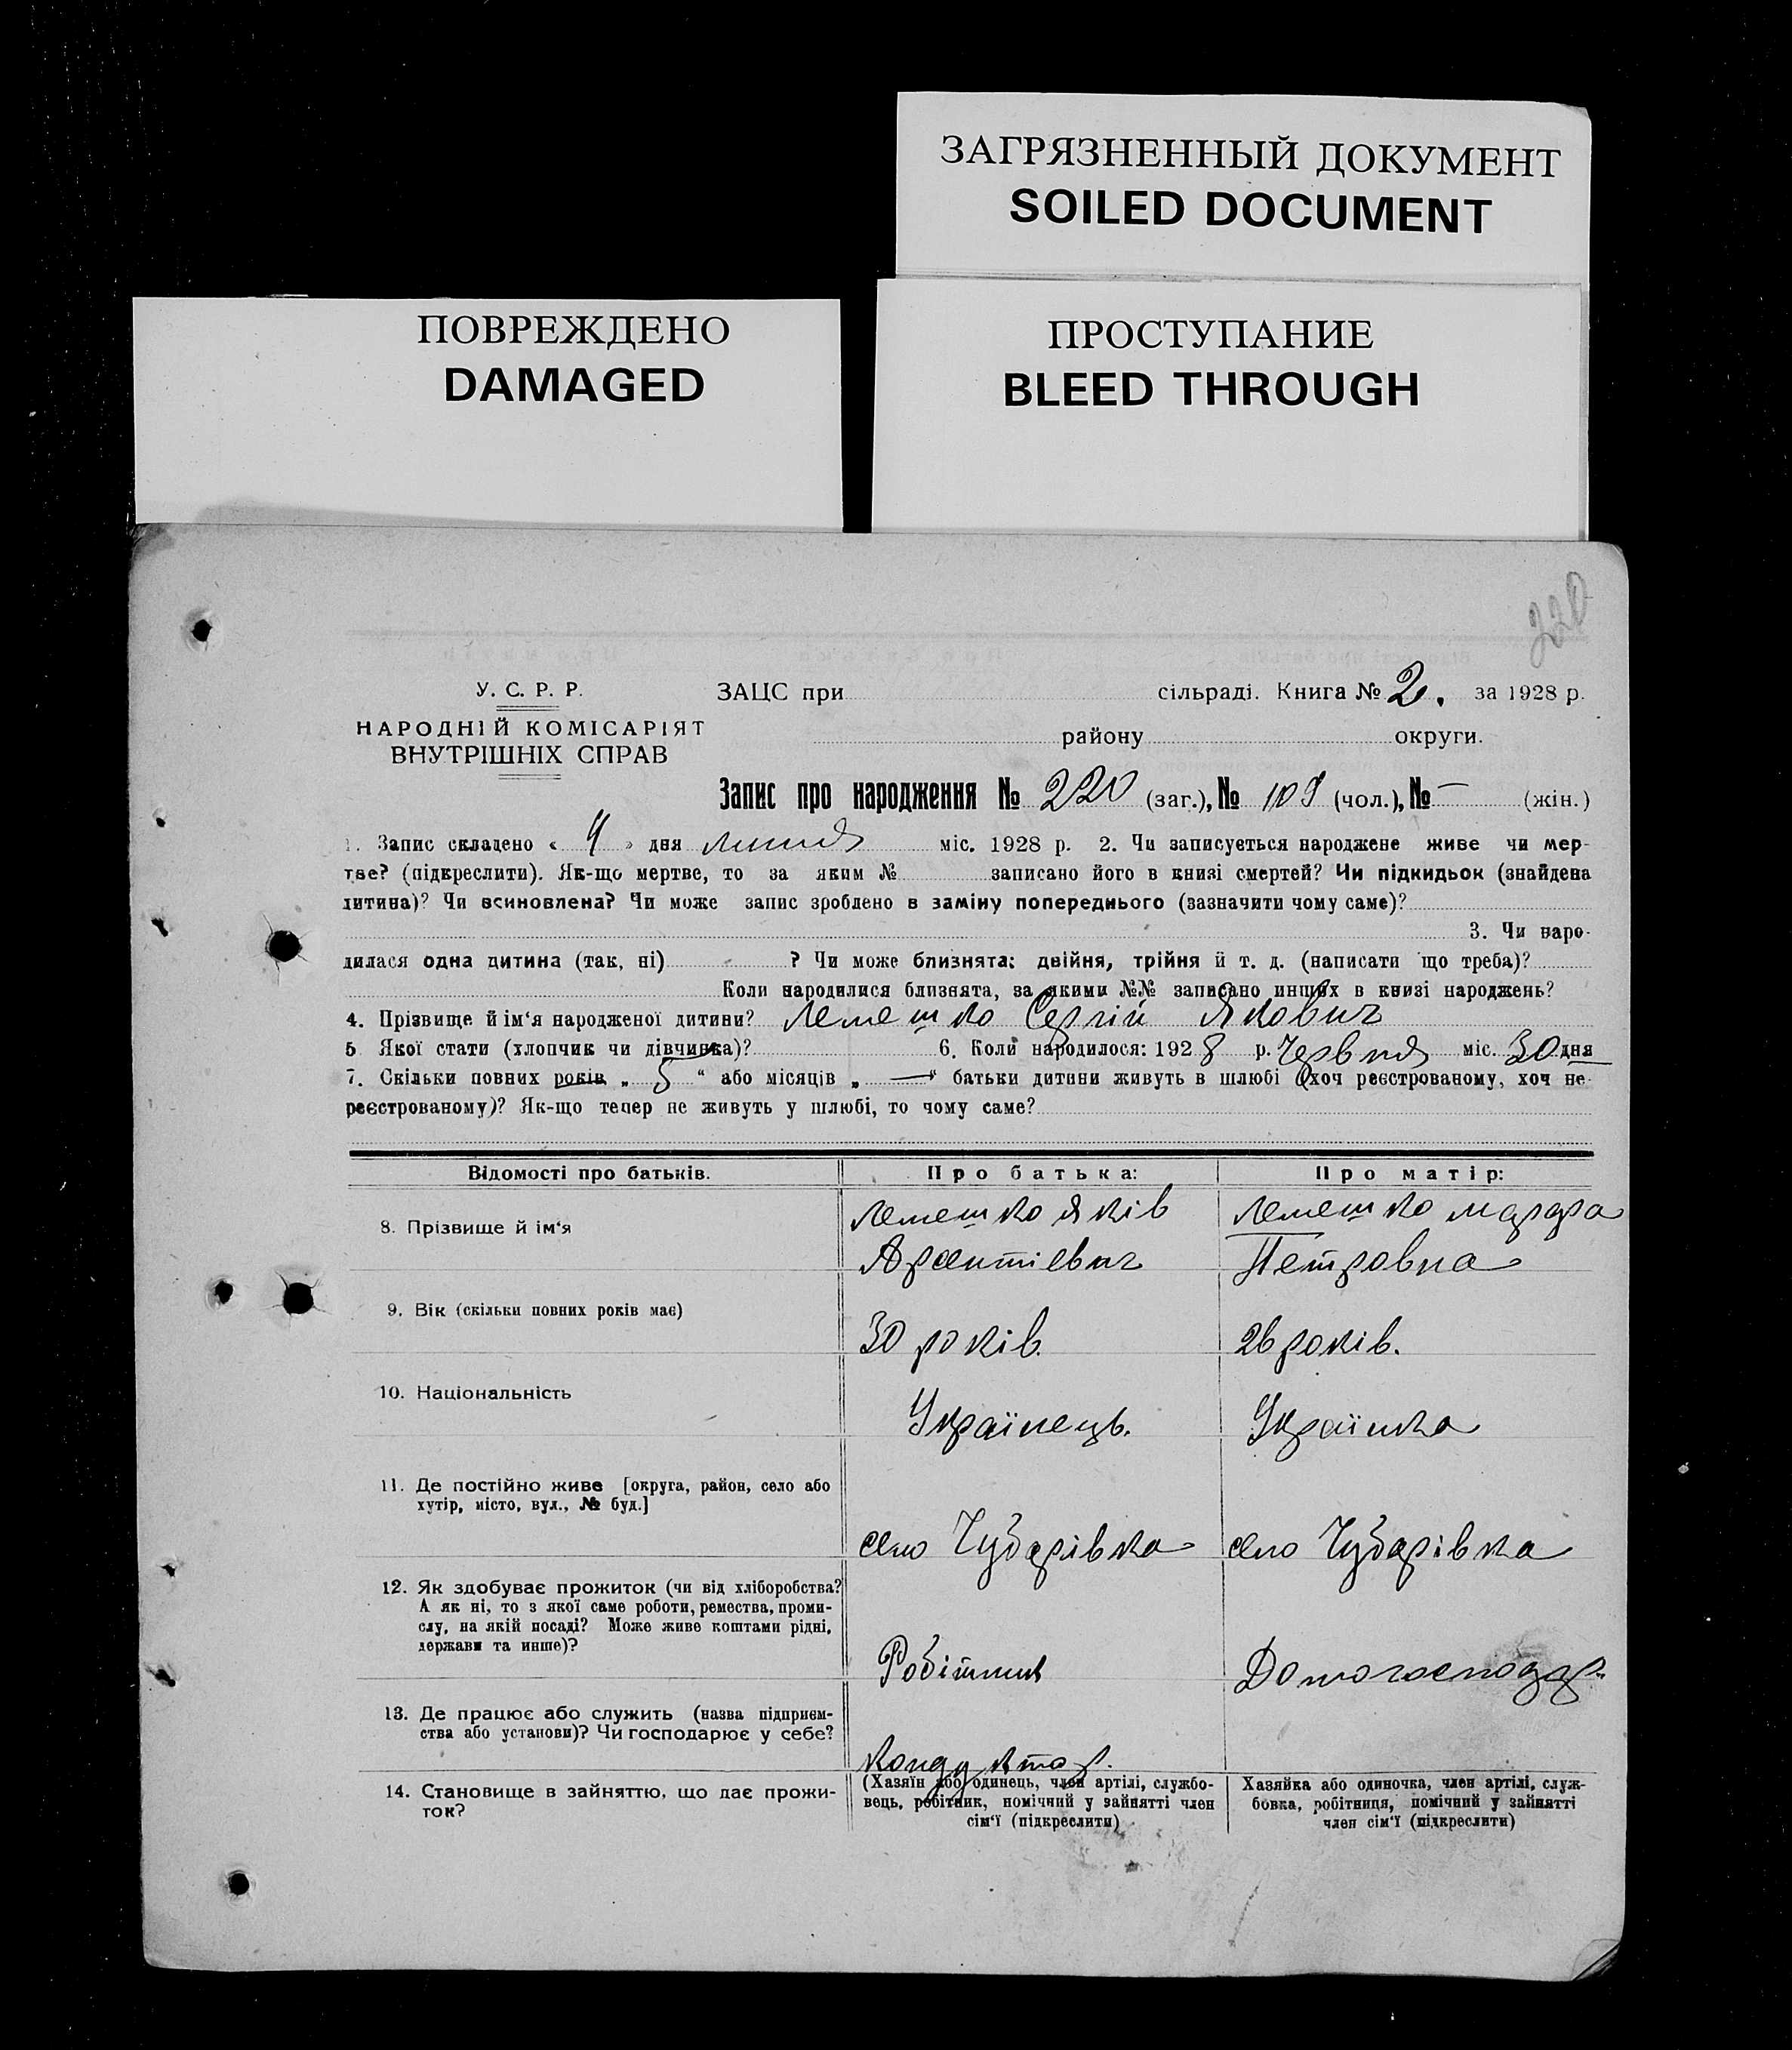 ЗАГРЯЗНЕННЫЙ ДОКУМЕНТ
SOILED DOCUMENT
ПОВРЕЖДЕНО
DAMAGED
ПРОСТУПАНИЕ
BLEED THROUGH
220
У. С. Р. Р.
НАРОДНІЙ КОМІСАРІЯТ
ВНУТРІШНІХ СПРАВ
ЗАЦС при сільраді. Книга № 2. за 1928 р.
району округи.
Запис про народження № 220 (заг.), № 109 (чол.), № — (жін.)
1. Запис складено « 4 » дня липня міс. 1928 р. 2. Чи записується народжене живе чи мер-
тве? (підкреслити). Як-що мертве, то за яким № записано його в книзі смертей? Чи підкидьок (знайдена
дитина)? Чи всиновлена? Чи може запис зроблено в заміну попереднього (зазначити чому саме)?
3. Чи наро-
дилася одна дитина (так, ні) ? Чи може близнята: двійня, трійня й т. д. (написати що треба)?
Коли народилися близнята, за якими №№ записано инших в книзі народжень?
4. Прізвище й ім‘я народженої дитини? Лемешко Сергій Якович
5 Якої стати (хлопчик чи дівчинка)? 6. Коли народилося: 1928 р. Червня міс. 30 дня
7. Скільки повних років „ 5 “ або місяців „ — “ батьки дитини живуть в шлюбі (хоч реєстрованому, хоч не-
реєстрованому)? Як-що тепер не живуть у шлюбі, то чому саме?
Відомості про батьків. Про батька: Про матір:
8. Прізвище й ім‘я Лемешко Яків Лемешко Марфа
Арсентіевич Петровна
9. Вік (скільки повних років має) 30 років. 26 років.
10. Національність Українець. Українка
11. Де постійно живе [округа, район, село або
хутір, місто, вул., № буд.]
село Чубарівка село Чубарівка
12. Як здобуває прожиток (чи від хліборобства?
А як ні, то з якої саме роботи, ремества, проми-
слу, на якій посаді? Може живе коштами рідні,
держави та инше)?
Робітник Домогосподар.
13. Де працює або служить (назва підприєм-
ства або установи)? Чи господарює у себе?
Кондуктор.
14. Становище в зайняттю, що дає прожи-
ток?
(Хазяїн або одинець, член артілі, службо-
вець, робітник, помічний у зайнятті член
сім‘ї (підкреслити)
Хазяйка або одиночка, член артілі, служ-
бовка, робітниця, помічний у зайнятті
член сім‘ї (підкреслити)